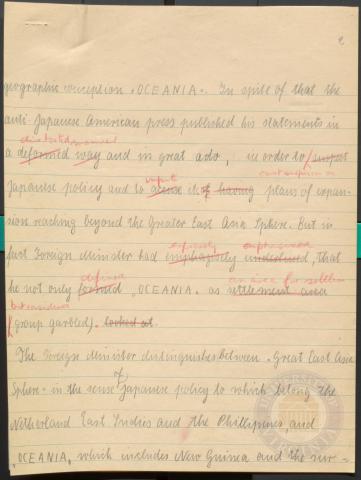 2
geographic conception "OCEANIA". In spite of that the
anti-Japanese American press published his statements in
distorted manner
a deformed way and in great ado, in order to suspect
impute
Japanese policy and to accuse it of having plans of expan-
sion reaching beyond the Greater East Asia Sphere. But in
expressly emphasized
fact Foreign Minister had emphatically underlined, that
define an area for settlem
he not only formed "OCEANIA" as settlement area
but considers
(group garbled). looked at.
The Foreign Minister distinguishes between "Great East Asia
of
Sphere" in the sense Japanese policy to which belong the
Netherland East Indies and the Phillipines and
"OCEANIA", which includes New Guinea and the sur-